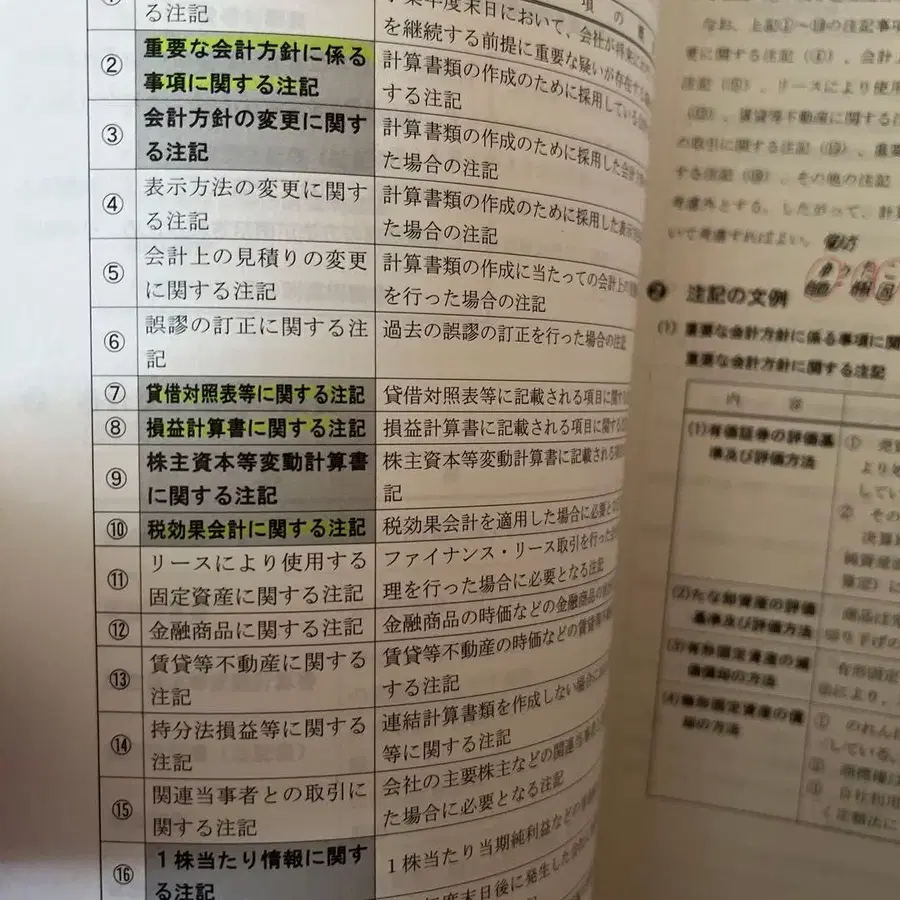 る注記
項の
業年度末日において、会社が将来に
を継続する前提に重要な疑いが存在する
② 重要な会計方針に係る
事項に関する注記
計算書類の作成のために採用している
する注記
③ 会計方針の変更に関す
る注記
計算書類の作成のために採用した会計
た場合の注記
④ 表示方法の変更に関す
る注記
計算書類の作成のために採用した表示
た場合の注記
⑤ 会計上の見積りの変更
に関する注記
計算書類の作成に当たっての会計上の
を行った場合の注記
⑥ 誤謬の訂正に関する注
記
過去の誤謬の訂正を行った場合の注記
⑦ 貸借対照表等に関する注記
貸借対照表等に記載される項目に関す
⑧ 損益計算書に関する注記
損益計算書に記載される項目に関する
⑨ 株主資本等変動計算書
に関する注記
株主資本等変動計算書に記載される
記
⑩ 税効果会計に関する注記
税効果会計を適用した場合に必要と
⑪ リースにより使用する
固定資産に関する注記
ファイナンス・リース取引を行った
理を行った場合に必要となる注記
⑫ 金融商品に関する注記
金融商品の時価などの金融商品の
⑬ 賃貸等不動産に関する
注記
賃貸等不動産の時価などの賃貸等
する注記
⑭ 持分法損益等に関する
注記
連結計算書類を作成しない場合に
等に関する注記
⑮ 関連当事者との取引に
関する注記
会社の主要株主などの関連当事者
た場合に必要となる注記
⑯ 1株当たり情報に関す
る注記
1株当たり当期純利益などの
年度末日後に発生した
なお、上記①~⑲の注記事項
更に関する注記(④)、会計上
注記(⑥)、リースにより使用
、賃貸等不動産に関する注
の取引に関する注記(⑮)、重要
する注記(⑱)、その他の注記
考慮外とする。したがって、計算
いて考慮すればよい。
❷ 注記の文例
(1) 重要な会計方針に係る事項に関
重要な会計方針に関する注記
内 容
(1)有価証券の評価基
準及び評価方法
① 売買
より
してい
② その
決算
純資産直
算定)に
(2)たな卸資産の評価
基準及び評価方法
商品は
切り下げの
(3)有形固定資産の減
価償却の方法
有形固定
(4)無形固定資産の償
却の方法
① のれん
している。
② 商標権は
③ 自社利用
く定額法に